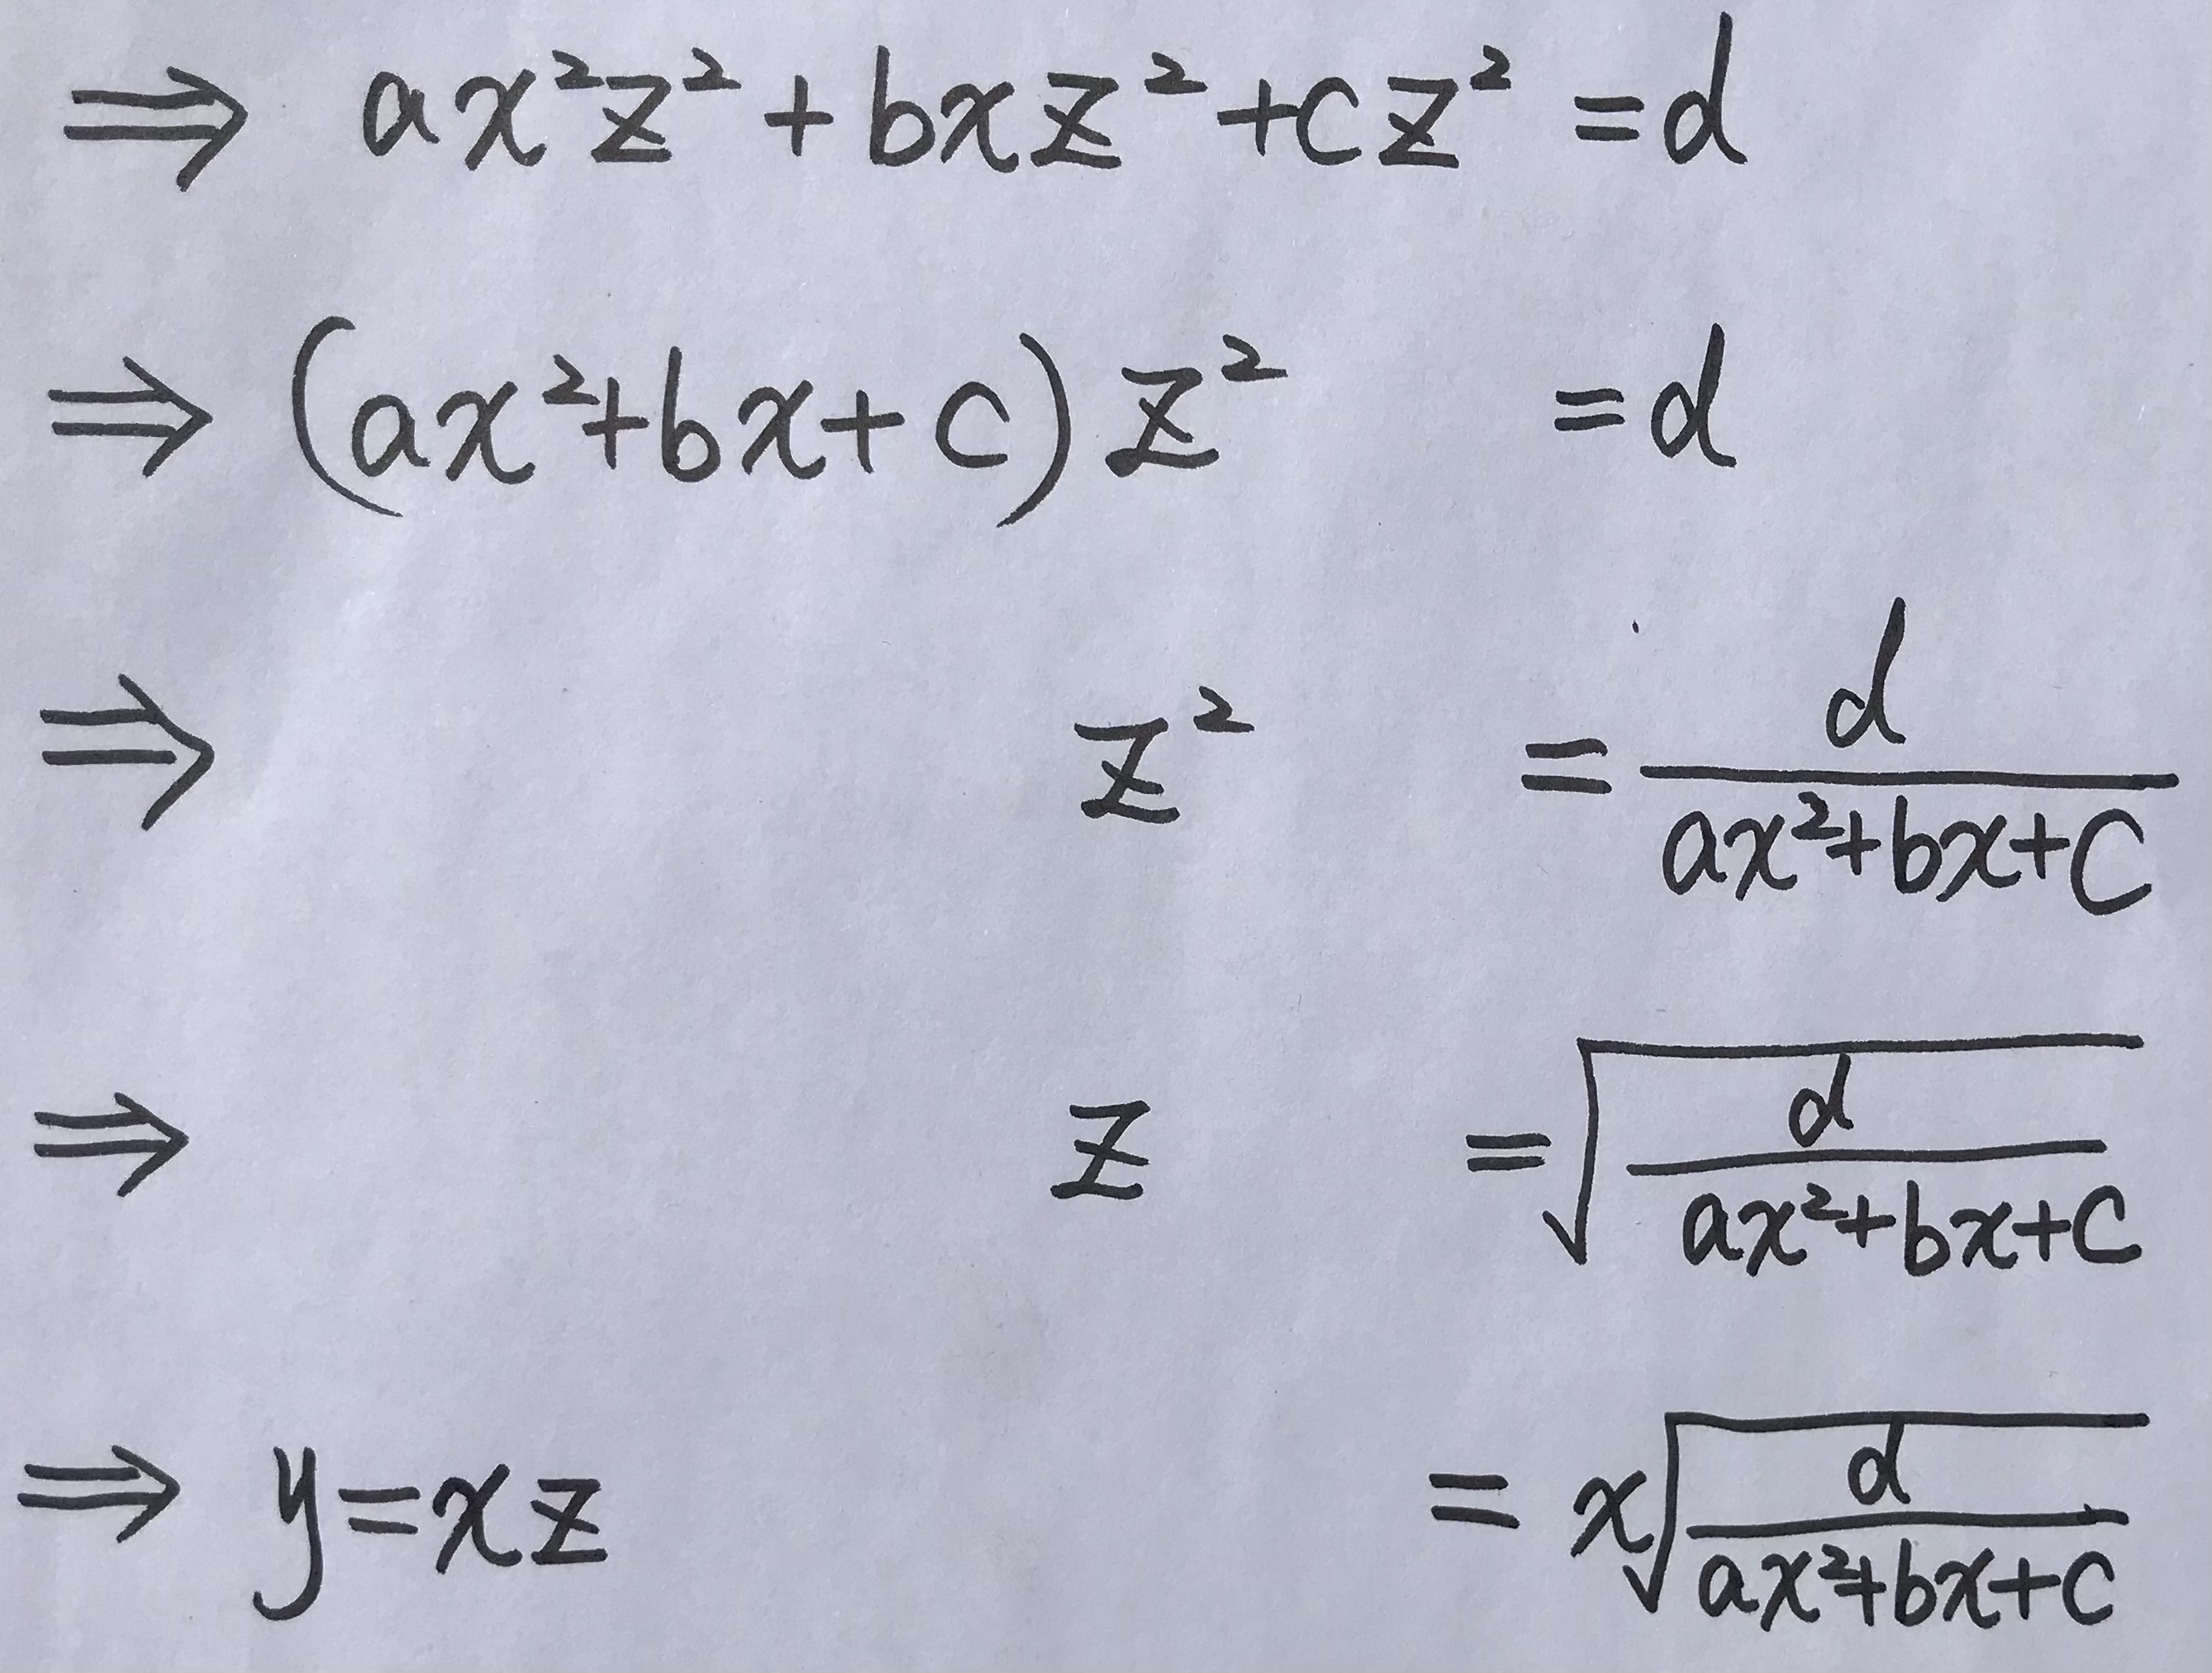 ⇒ ax²z² + bxz² + cz² = d
⇒ (ax²+bx+c)z² = d
⇒ z² = d/(ax²+bx+c)
⇒ z = √(d/(ax²+bx+c))
⇒ y=xz = x√(d/(ax²+bx+c))